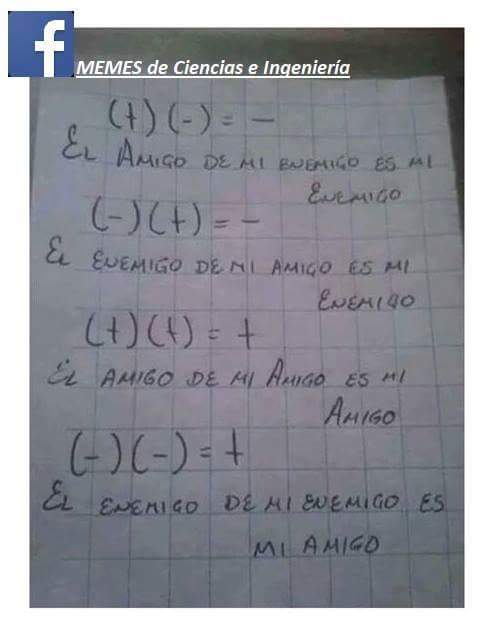 f
MEMES de Ciencias e Ingeniería
(+)(-) = -
EL AMIGO DE MI ENEMIGO ES MI
ENEMIGO
(-)(+) = -
EL ENEMIGO DE MI AMIGO ES MI
ENEMIGO
(+)(+) = +
EL AMIGO DE MI AMIGO ES MI
AMIGO
(-)(-) = +
EL ENEMIGO DE MI ENEMIGO ES
MI AMIGO